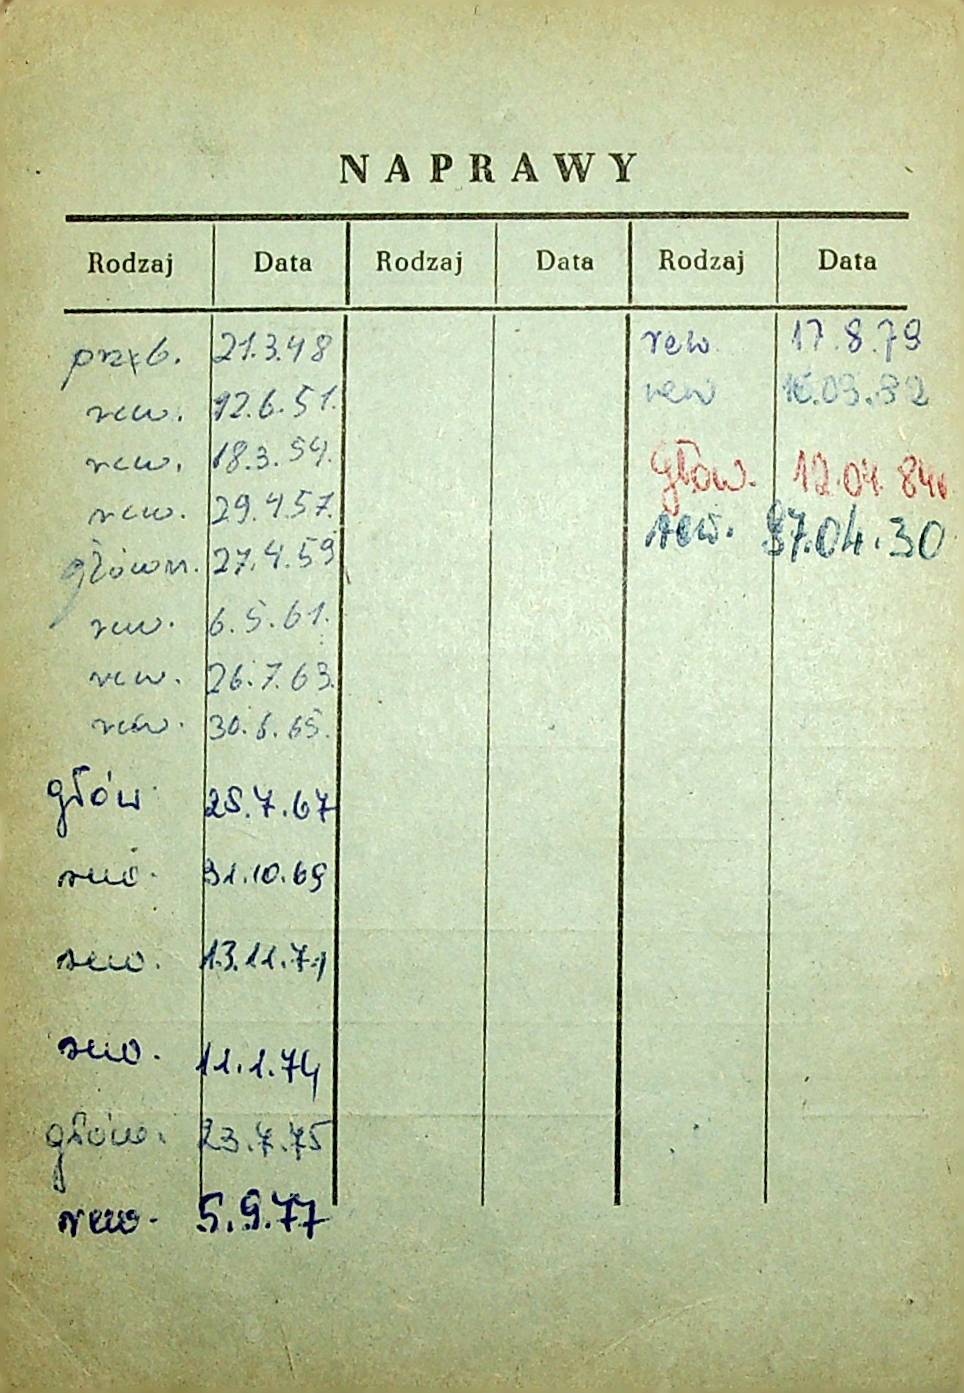 NAPRAWY
Rodzaj Data Rodzaj Data Rodzaj Data
21.3.48
rew. 12.6.51.
rew. 18.3.54.
rew. 29.4.57.
główn. 27.4.59
rew. 6.5.61.
rew. 26.7.63.
rew. 30.6.65.
głów 25.7.67
rew. 31.10.69
rew. 13.11.71
rew. 11.1.74
głów. 23.7.75
rew. 5.9.77
rew 17.8.79
rew
głów. 12.04.84
rew. 87.04.30